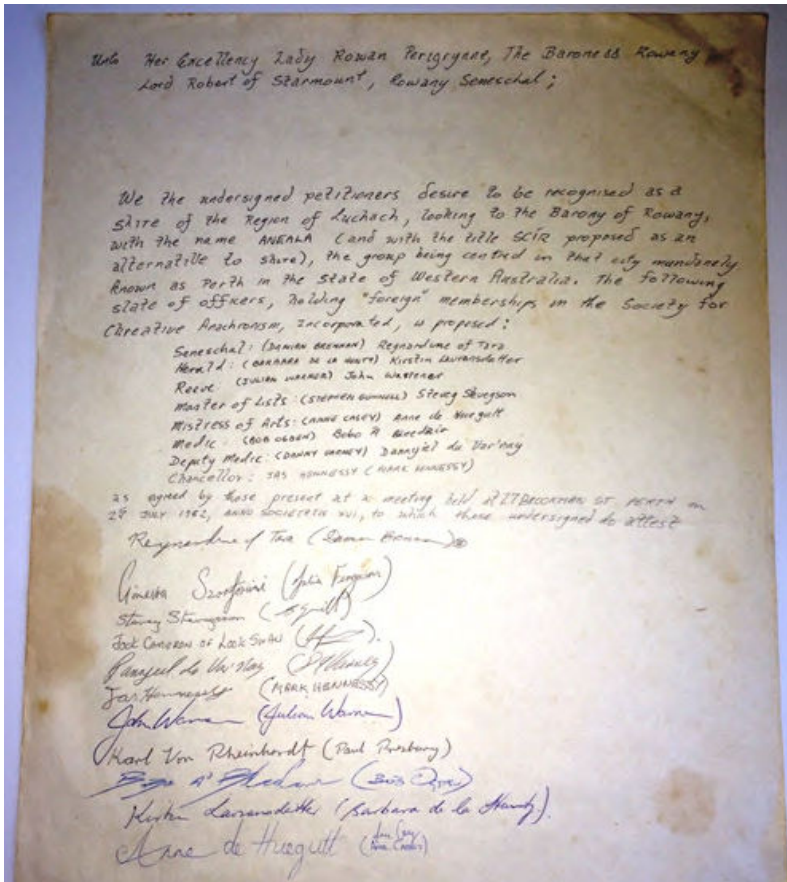 Unto Her Excellency Lady Rowan Perigrynne, The Baroness Rowany
Lord Robert of Starmount, Rowany Seneschal;
We the undersigned petitioners desire to be recognised as a
shire of the Region of Lochach, looking to the Barony of Rowany,
with the name ANEALA (and with the title SCIR proposed as an
alternative to shire), the group being centred in that city mundanely
known as Perth in the State of Western Australia. The following
slate of officers, holding "foreign" memberships in the Society for
Creative Anachronism, Incorporated, is proposed:
Seneschal: (DAMIAN BRENNAN) Reynardine of Tara
Herald: (BARBARA DE LA HUNTY) Kirstin Lavransdatter
Reeve: (JULIAN WARNER) John
Master of Lists: (STEPHEN GUNNELL) Steveg
Mistress of Arts: (ANNE CASEY) Anne de Huegutt
Medic: (BOB OGDEN) Bobo A'
Deputy Medic: (DANNY VARNEY) Dannyiel du Var'eny
Chancellor: JAS HENNESSY (MARK HENNESSY)
as agreed by those present at a meeting held at 27 BROOKMAN ST. PERTH on
JULY 1982, ANNO SOCIETATIS XVII, to which those undersigned do attest
Reynardine of Tara (Damian Brennan)
Ginevra (Julia Ferguson)
Jock CAMERON OF LOCK
Jas Hennessy (MARK HENNESSY)
John (Julian Warner)
Karl Von Rheinhardt (Paul)
Kirstin Lavransdatter (Barbara de la Hunty).
Anne de Huegutt